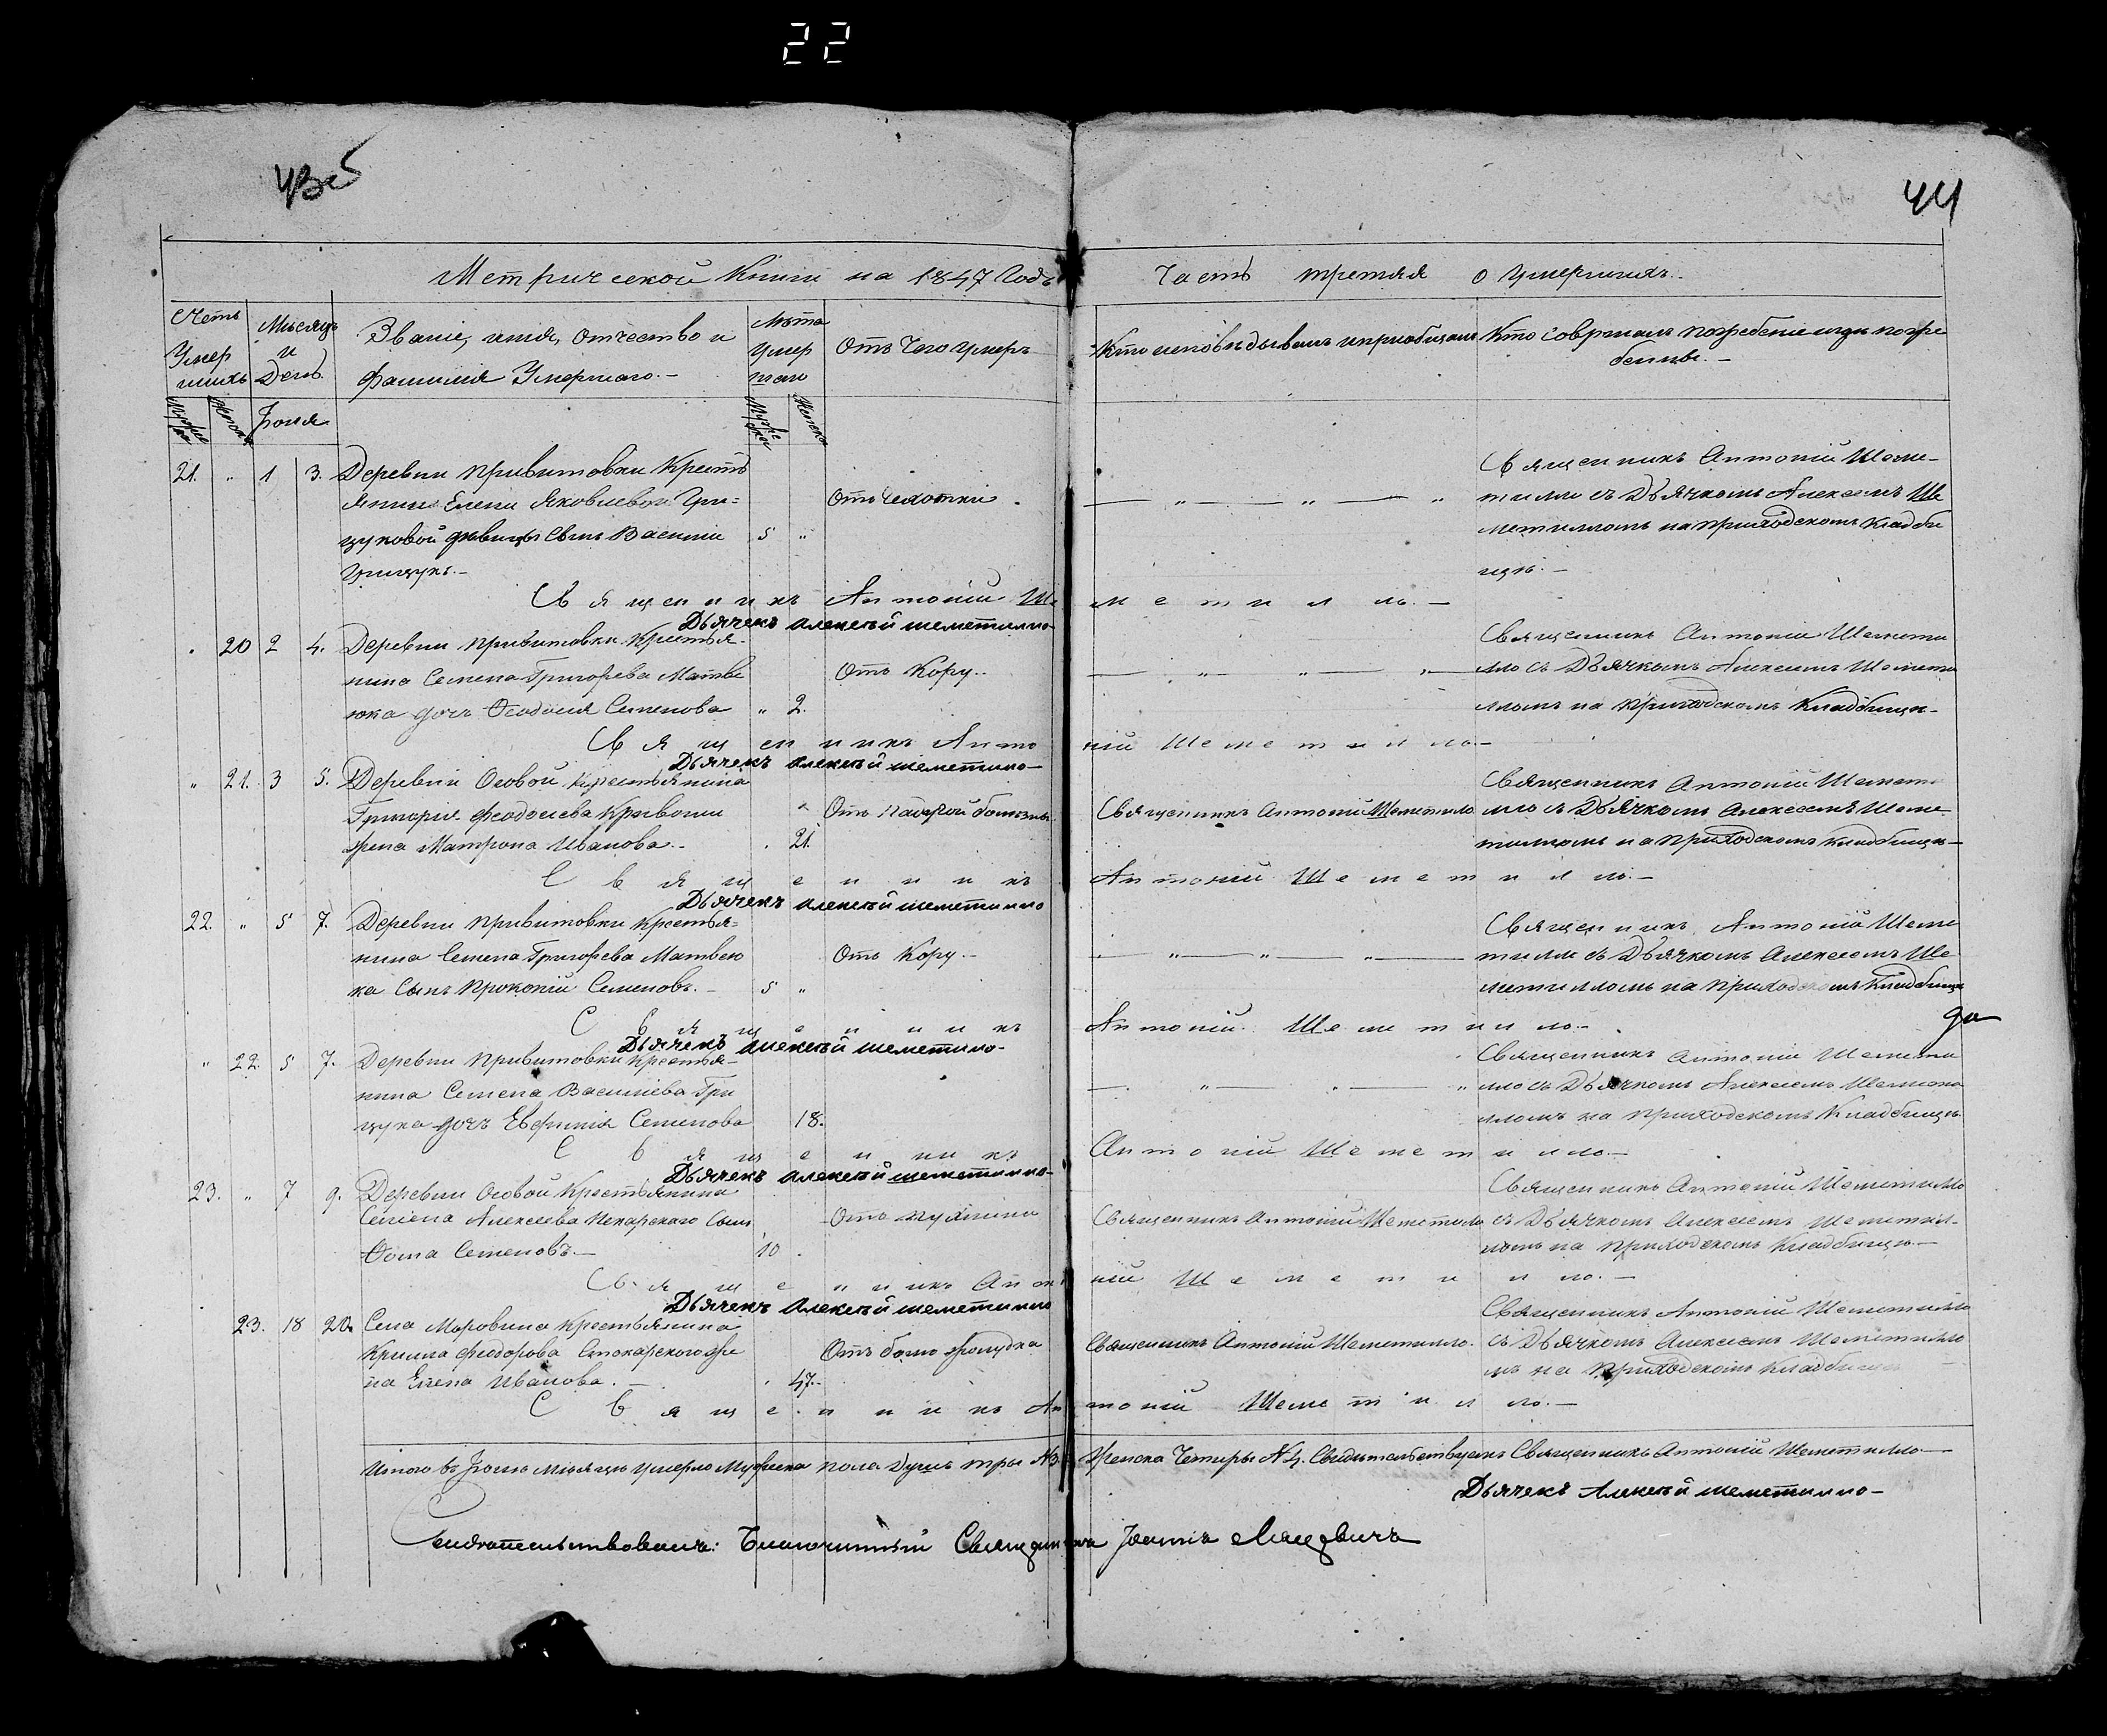 22
43об
44
Метрической Книги на 1847 Годъ
Часть третяя о умершихъ.
Счетъ Умершихъ
Мѣсяцъ и День.
Званіе, имя, Отчество и фамилія Умершаго.-
Лѣта Умершаго
Отъ Чего умеръ
Кто исповѣдывалъ и пріобщалъ
Кто совершалъ погребеніе и гдѣ погребенны.-
Мужска
Женска
Іюня
Мужска
Женска
21. " 1 3. Деревни Привитовки Кресть
янина Елены Яковлевой Гри=
цуковой дѣвицы сынъ Василій 5 "
Грицукъ.-
Отъ Чехотки
Священникъ Антоній Шеме-
тилло съ Дьячкомъ Алексеемъ Ше
метилломъ на приходскомъ кладби
щѣ.-
Священникъ Антоній Шеметилло.-
Дьячекъ Алексѣй Шеметилло-
" 20 2 4. Деревни Привитовки Крестья-
нина Семена Григорева Матве
юка дочь Феодосія Семенова " 2.
Отъ Кору..
Священникъ Антоній Шемети
лло съ Дьячкомъ Алексеемъ Шемети
лломъ на Приходскомъ Кладбищѣ-
Священникъ Антоній Шеметилло.-
Дьячекъ Алексѣй Шеметилло-
" 21. 3 5. Деревни Осовой Крестьянина
Григорія Феодосіева Кривоши
жена Матрона Иванова.- . 21.
Отъ Падучой болѣзни
Священникъ Антоній Шеметилло
Священникъ Антоній Шемети
лло съ Дьячкомъ Алексеемъ Шеме-
тилломъ на Приходскомъ Кладбищѣ-
Священникъ Антоній Шеметилло.-
Дьячекъ Алексѣй Шеметилло
22. " 5 7. Деревни Привитовки Крестья=
нина Семена Григорева Матвею
ка Сынъ Прокопій Семеновъ.- 5 "
Отъ Кору.-
Священникъ Антоній Шеме
тилло съ Дьячкомъ Алексеемъ Ше
метилломъ на Приходскомъ Кладбищѣ
Священникъ Антоній Шеметилло.-
Дьячекъ Алексѣй Шеметилло-
" 22. 5 7. Деревни Привитовки Крестья-
нина Семена Василіева Гри
цука дочь Евфимія Семенова 18.
Священникъ Антоній Шемети
лло съ Дьячкомъ Алексеемъ Шемети
лломъ на Приходскомъ Кладбищѣ
Священникъ Антоній Шеметилло.-
Дьячекъ Алексѣй Шеметилло-
23. " 7 9. Деревни Осовой Крестьянина
Семена Алексеева Пекарского Сынъ
Фома Семеновъ.- 10 .
Священникъ Антоній Шеметилло
Священникъ Антоній Шеметилло
съ Дьячкомъ Алексеемъ Шеметил-
ломъ на Приходскомъ Кладбищѣ-
Священникъ Антоній Шеметилло.-
Дьячекъ Алексѣй Шеметилло
23. 18 20. Села Мокровина Крестьянина
Крилла Феодорова Стокарского же
на Елена Иванова.- . 47.-
Отъ боли жолудка
Священникъ Антоній Шеметилло.
Священникъ Антоній Шеметилло
съ Дьячкомъ Алексеемъ Шеметилло
мъ на Приходскомъ Кладбищѣ
Священникъ Антоній Шеметилло.-
Итого въ Іюнѣ Мѣсяцѣ Умерло Мужеска пола Душъ три №3. Женска Четыры №4. Свидѣтельствуемъ Священникъ Антоній Шеметилло-
Дьячекъ Алексѣй Шеметилло-
Свидѣтельствовалъ: Благочинный Священникъ Іоаннъ